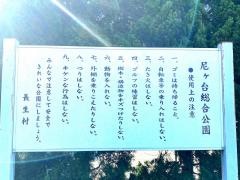 尼ヶ台総合公園
●使用上の注意
一、ゴミは持ち帰ること。
二、自転車等の乗り入れはしない。
三、たき火はしない。
四、ゴルフの練習はしない。
五、樹木・構造物をキズつけたりしない。
六、動物を入れない。
七、外柵を乗りこえたりしない。
八、つりはしない。
九、キケンな行為はしない。
みんなで注意して安全で
きれいな公園にしましょう。
長生村